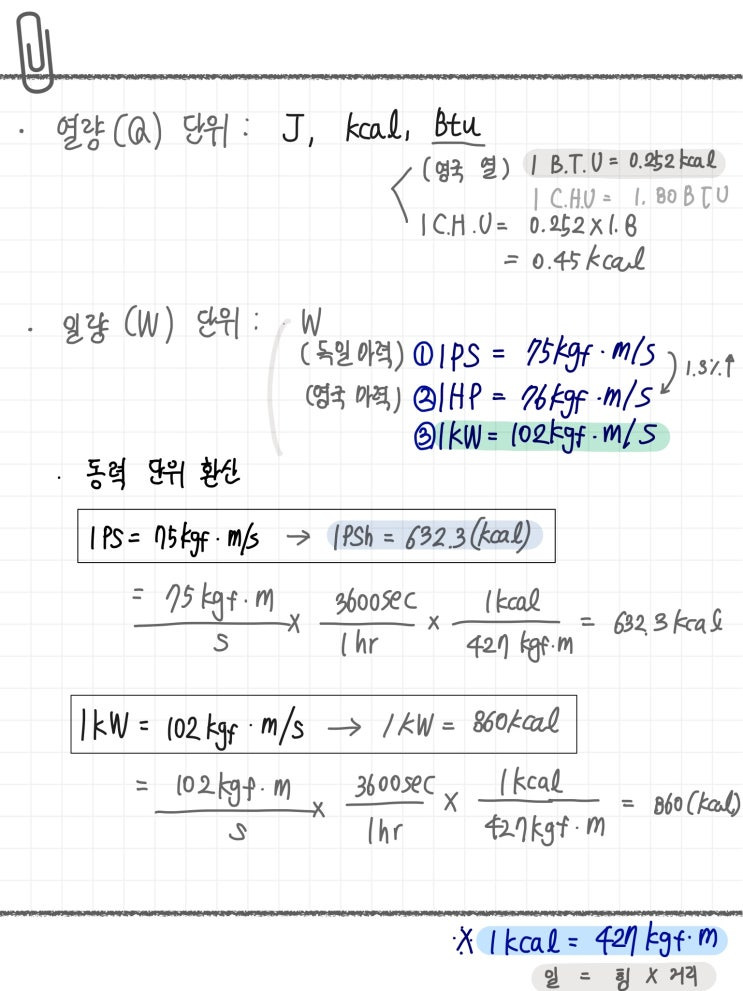 · 열량(Q) 단위 : J, kcal, Btu
(영국 열) 1 B.T.U = 0.252 kcal
1 C.H.U = 1.80 BTU
1 C.H.U = 0.252 × 1.8
= 0.45 kcal
· 일량 (W) 단위 : · W
(독일 마력) ① 1PS = 75kgf · m/s
1.3% ↑
(영국 마력) ② 1HP = 76kgf · m/s
③ 1kW = 102kgf · m/s
· 동력 단위 환산
1PS = 75kgf · m/s → 1PSh = 632.3(kcal)
= 75 kgf · m / s × 3600sec / 1hr × 1kcal / 427 kgf·m = 632.3 kcal
1kW = 102 kgf · m/s → 1kW = 860kcal
= 102kgf · m / s × 3600sec / 1hr × 1kcal / 427kgf · m = 860 (kcal)
※ 1kcal = 427 kgf·m
일 = 힘 × 거리